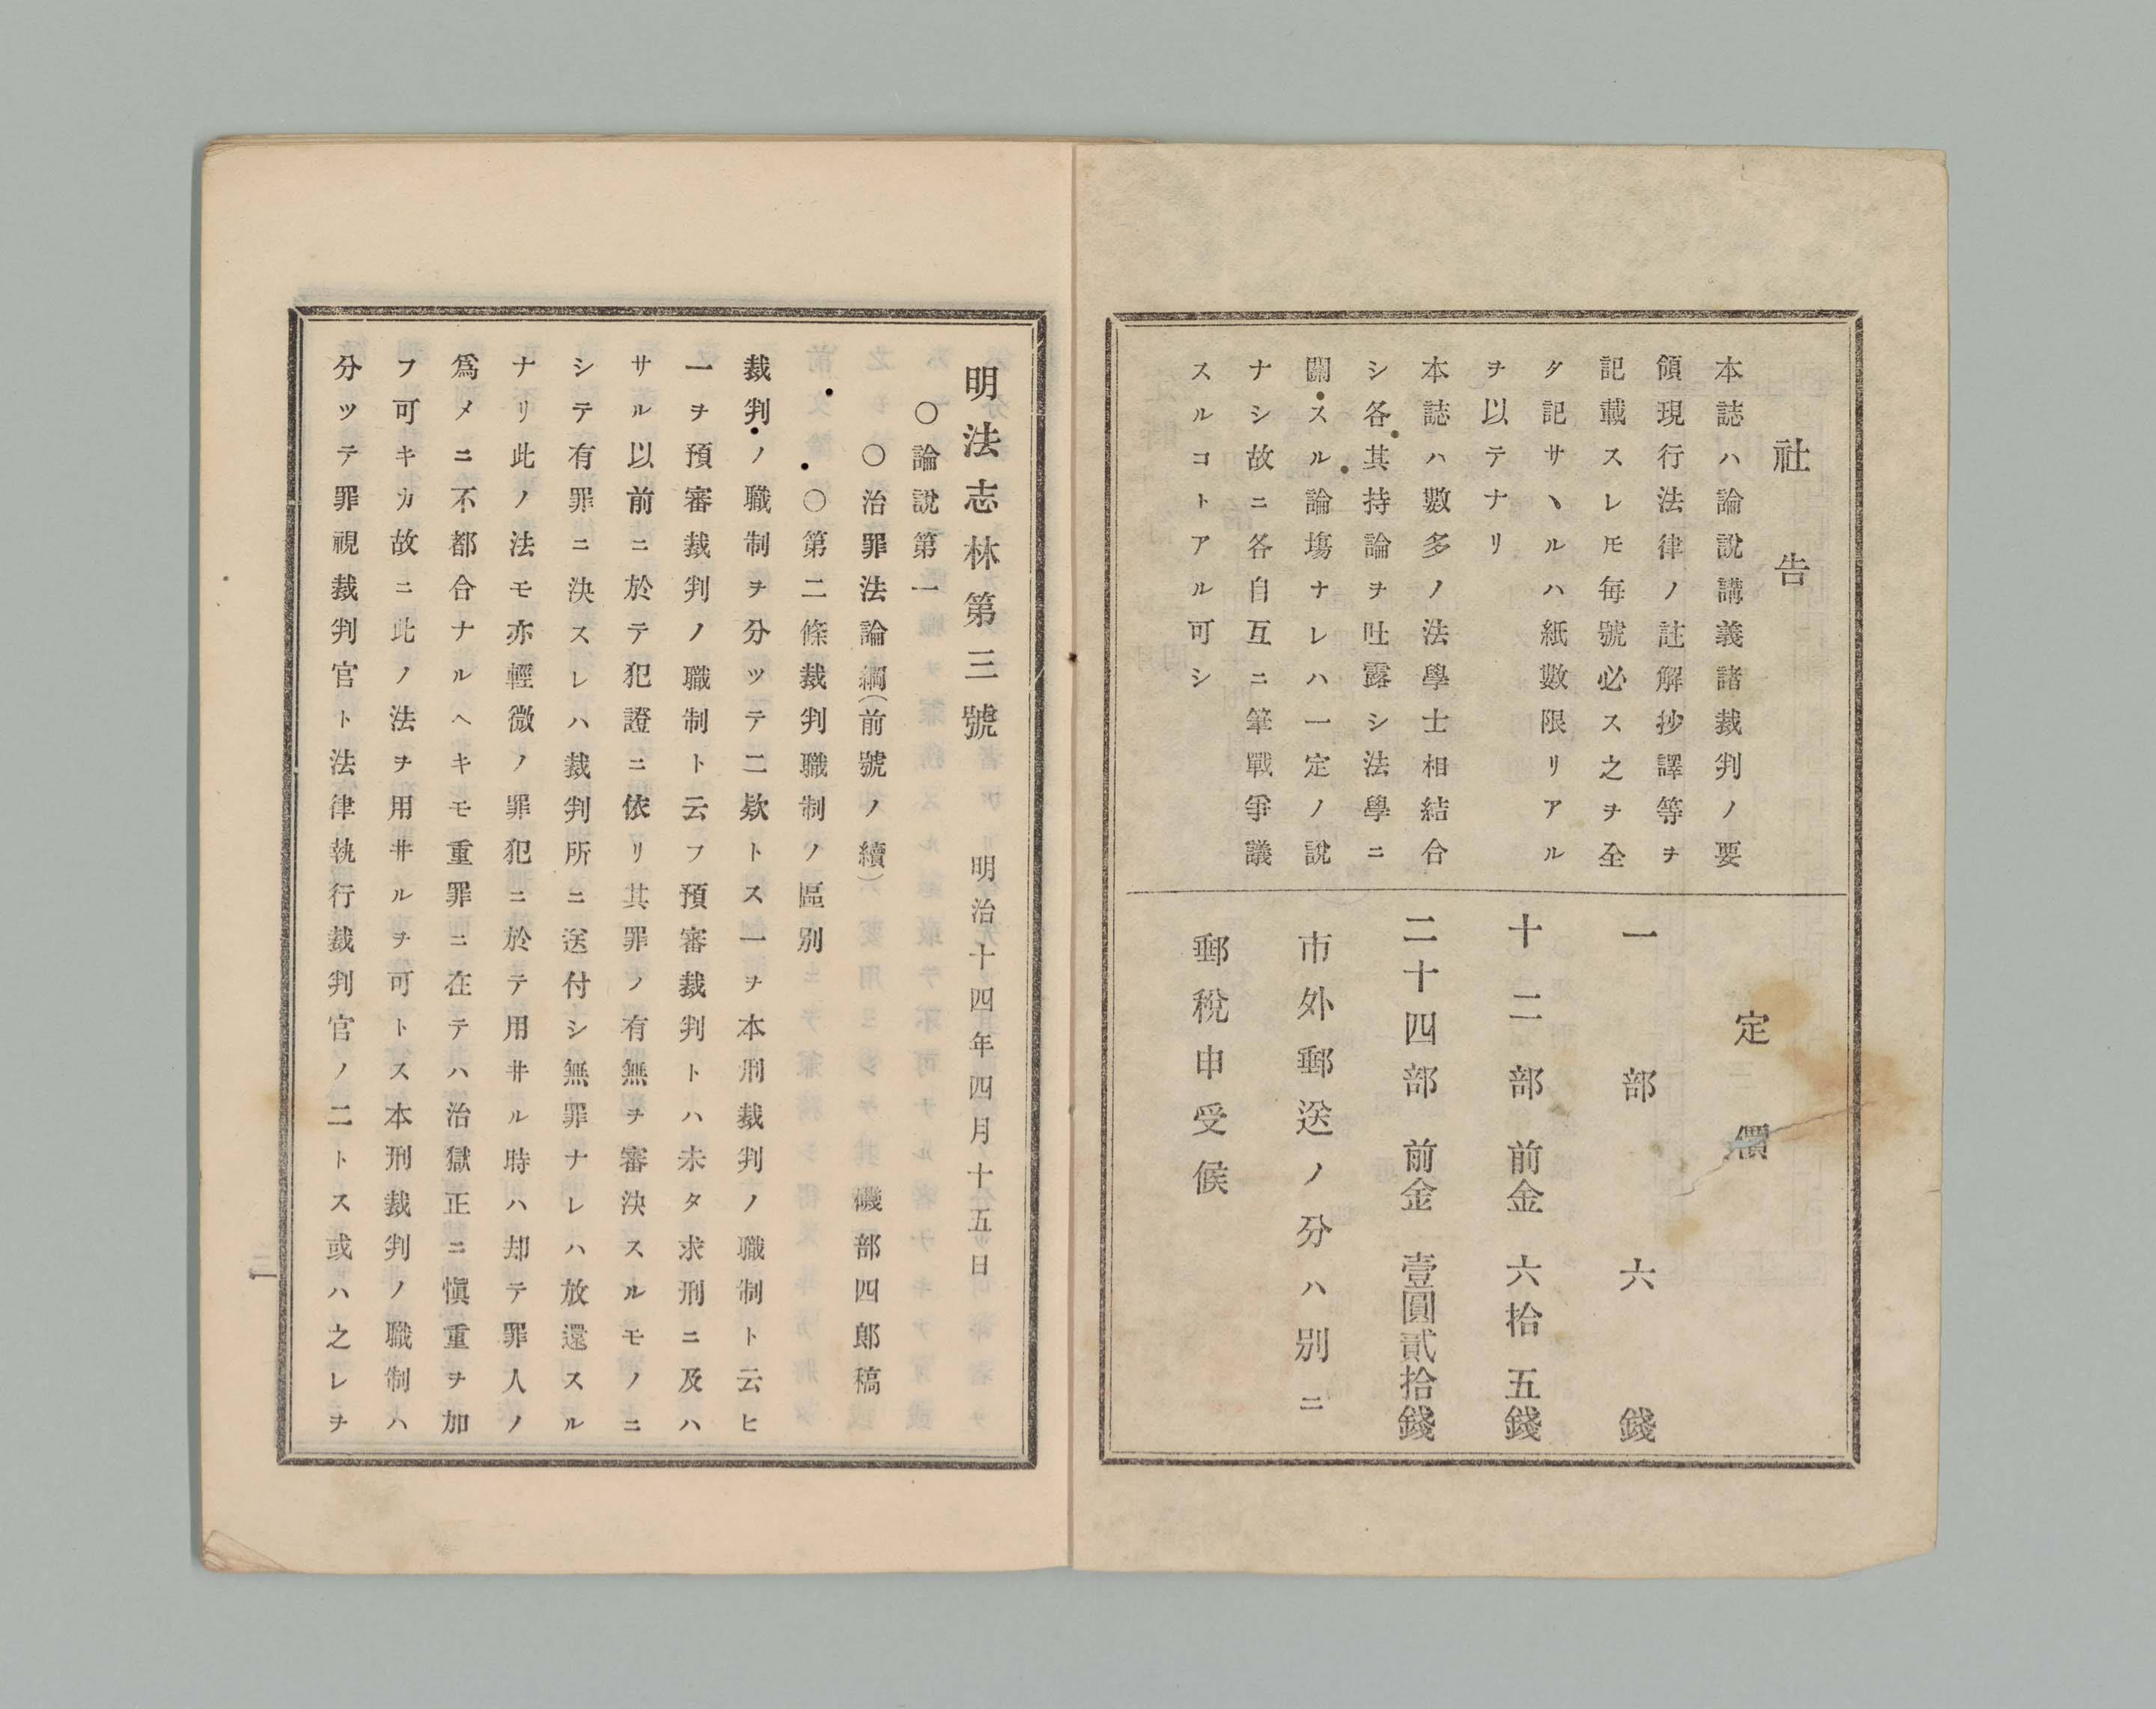 社告
本誌ハ論說講義諸裁判ノ要
領現行法律ノ註解抄譯等ヲ
記載スレ𪜈每號必ス之ヲ全
タ記サヽルハ紙數限リアル
ヲ以テナリ
本誌ハ數多ノ法學士相結合
シ各其持論ヲ吐露シ法學ニ
關スル論塲ナレハ一定ノ說
ナシ故ニ各自互ニ筆戰爭議
スルコトアル可シ
定價
一部 六錢
十二部 前金 六拾五錢
二十四部 前金 壹圓貳拾錢
市外郵送ノ分ハ別ニ
郵稅申受候
明法志林第三號 明治十四年四月十五日
〇論說第一
〇治罪法論綱(前號ノ續) 磯部四郎稿
〇第二條裁判職制ノ區別
裁判ノ職制ヲ分ツテ二欵トス一ヲ本刑裁判ノ職制ト云ヒ
一ヲ預審裁判ノ職制ト云フ預審裁判トハ未タ求刑ニ及ハ
サル以前ニ於テ犯證ニ依リ其罪ノ有無ヲ審決スルモノニ
シテ有罪ニ決スレハ裁判所ニ送付シ無罪ナレハ放還スル
ナリ此ノ法モ亦輕微ノ罪犯ニ於テ用井ル時ハ却テ罪人ノ
爲メニ不都合ナルヘキモ重罪ニ在テハ治獄正ニ愼重ヲ加
フ可キカ故ニ此ノ法ヲ用井ルヲ可トス本刑裁判ノ職制ハ
分ツテ罪視裁判官ト法律執行裁判官ノ二トス或ハ之レヲ
二